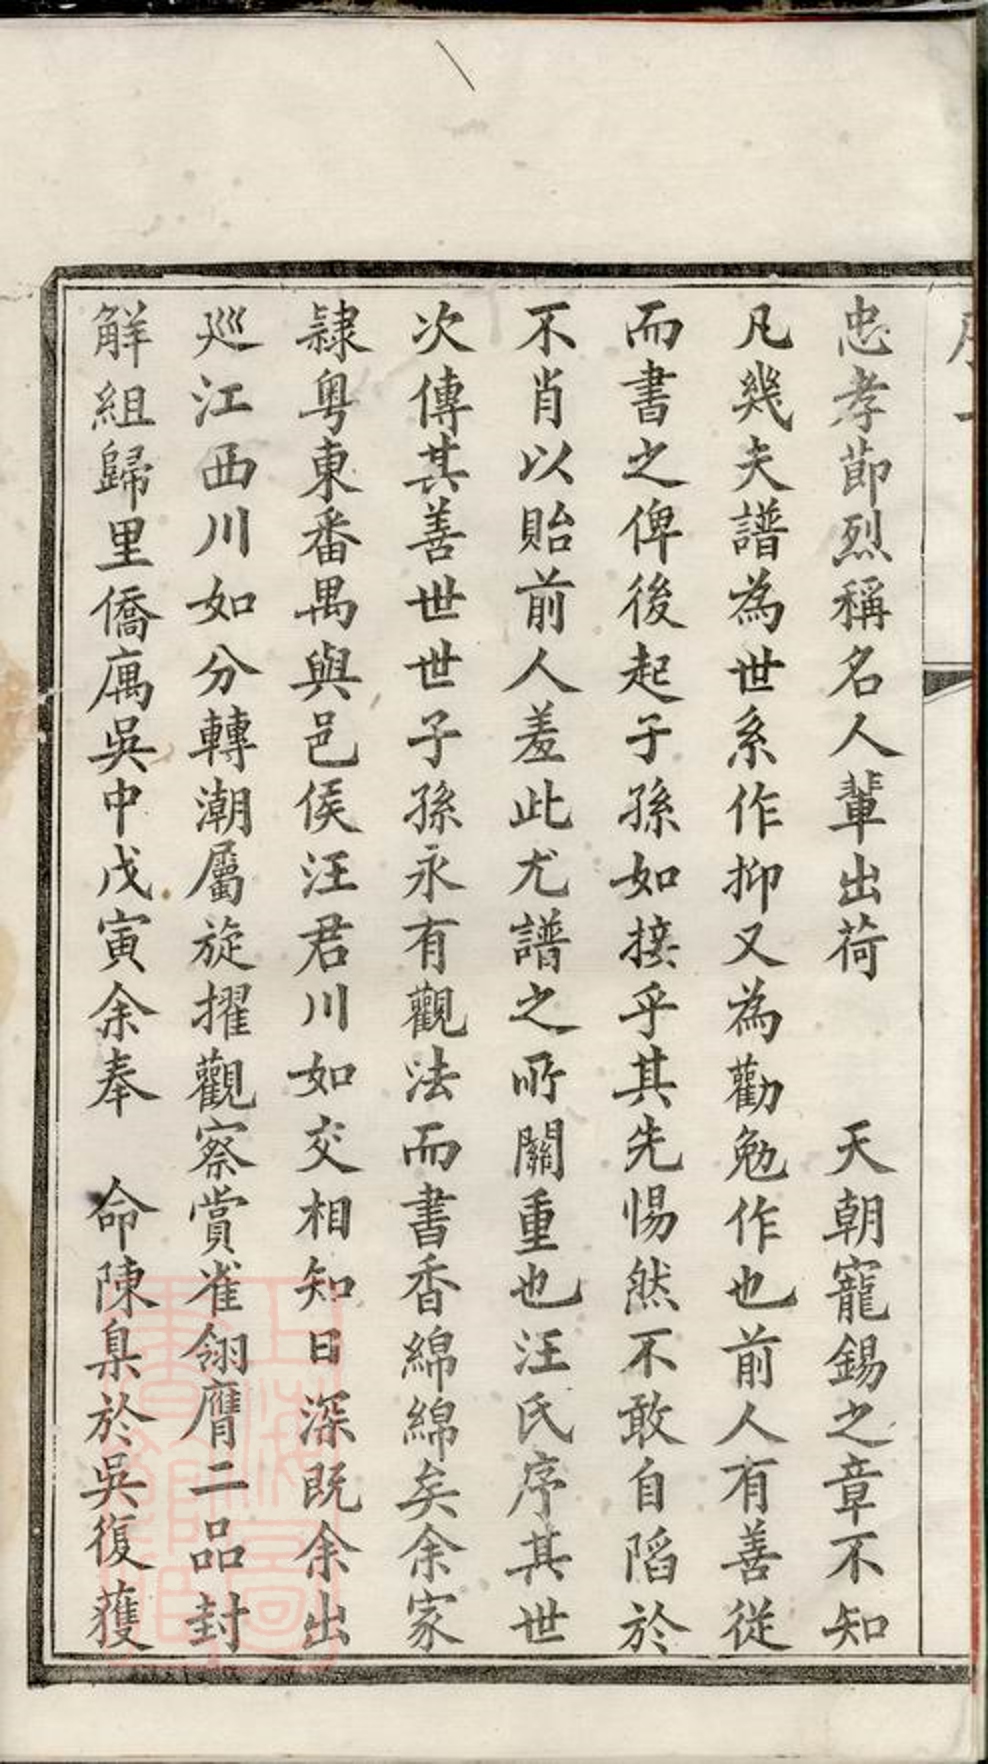 忠孝節烈稱名人輩出荷　天朝寵錫之章不知
凡幾夫譜為世系作抑又為勸勉作也前人有善從
而書之俾後起子孫如接乎其先惕然不敢自陷於
不肖以貽前人羞此尤譜之所關重也汪氏序其世
次傳其善世世子孫永有觀法而書香綿綿矣余家
隸粵東番禺與邑侯汪君川如交相知日深既余出
巡江西川如分轉潮屬旋擢觀察賞雀翎膺二品封
解組歸里僑寓吳中戊寅余奉　命陳臬於吳復獲
上海圖書館藏